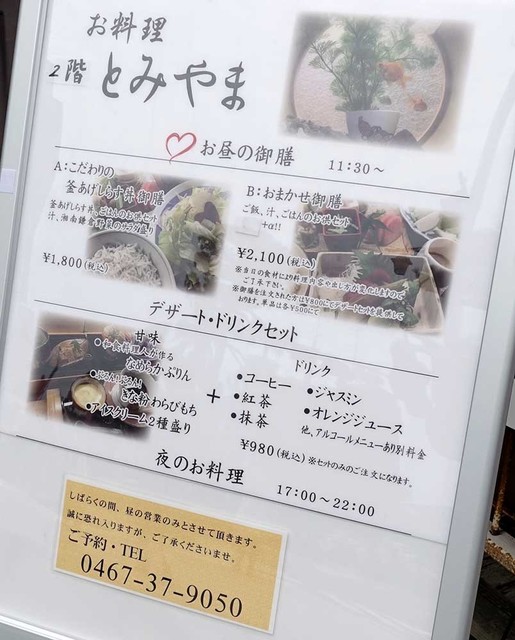 お料理
2階 とみやま
お昼の御膳 11:30～
A：こだわりの
釜あげしらす丼御膳
釜あげしらす丼、ごはんのお供セット
汁、湘南鎌倉野菜のサラダ盛り
¥1,800(税込)
B：おまかせ御膳
ご飯、汁、ごはんのお供セット
+α!!
¥2,100(税込)
※当日の食材により料理内容や出し方が変化しますので
ご了承下さい。
※御膳を注文された方は¥800にてデザートセットを提供して
おります。単品は各¥500にて
デザート・ドリンクセット
甘味
●和食料理人が作る
なめらかぷりん
●ぷるんぷるん！
きな粉わらびもち
●アイスクリーム2種盛り
+
ドリンク
●コーヒー
●紅茶
●抹茶
●ジャスミン
●オレンジジュース
他、アルコールメニューあり別料金
¥980(税込)※セットのみのご注文になります。
夜のお料理 17:00～22:00
しばらくの間、昼の営業のみとさせて頂きます。
誠に恐れ入りますが、ご了承くださいませ。
ご予約・TEL
0467-37-9050